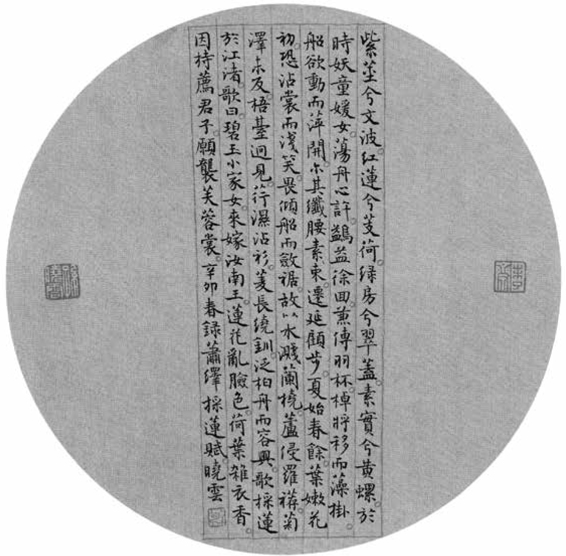 紫莖兮文波。紅蓮兮芰荷。綠房兮翠蓋。素實兮黃螺。於
時妖童媛女。蕩舟心許。鷁首徐回。兼傳羽杯。棹將移而藻掛。
船欲動而萍開。尒其纖腰素束。遷延顧步。夏始春餘。葉嫩花
初。恐沾裳而淺笑。畏傾船而斂裾。故以水濺蘭橈。蘆侵羅襦。菊
澤未反。梧臺迥見。荇濕沾衫。菱長繞釧。泛柏舟而容與。歌採蓮
於江渚。歌曰。碧玉小家女。來嫁汝南王。蓮花亂臉色。荷葉雜衣香。
因持薦君子。願襲芙蓉裳。辛卯春錄蕭繹採蓮賦曉雲